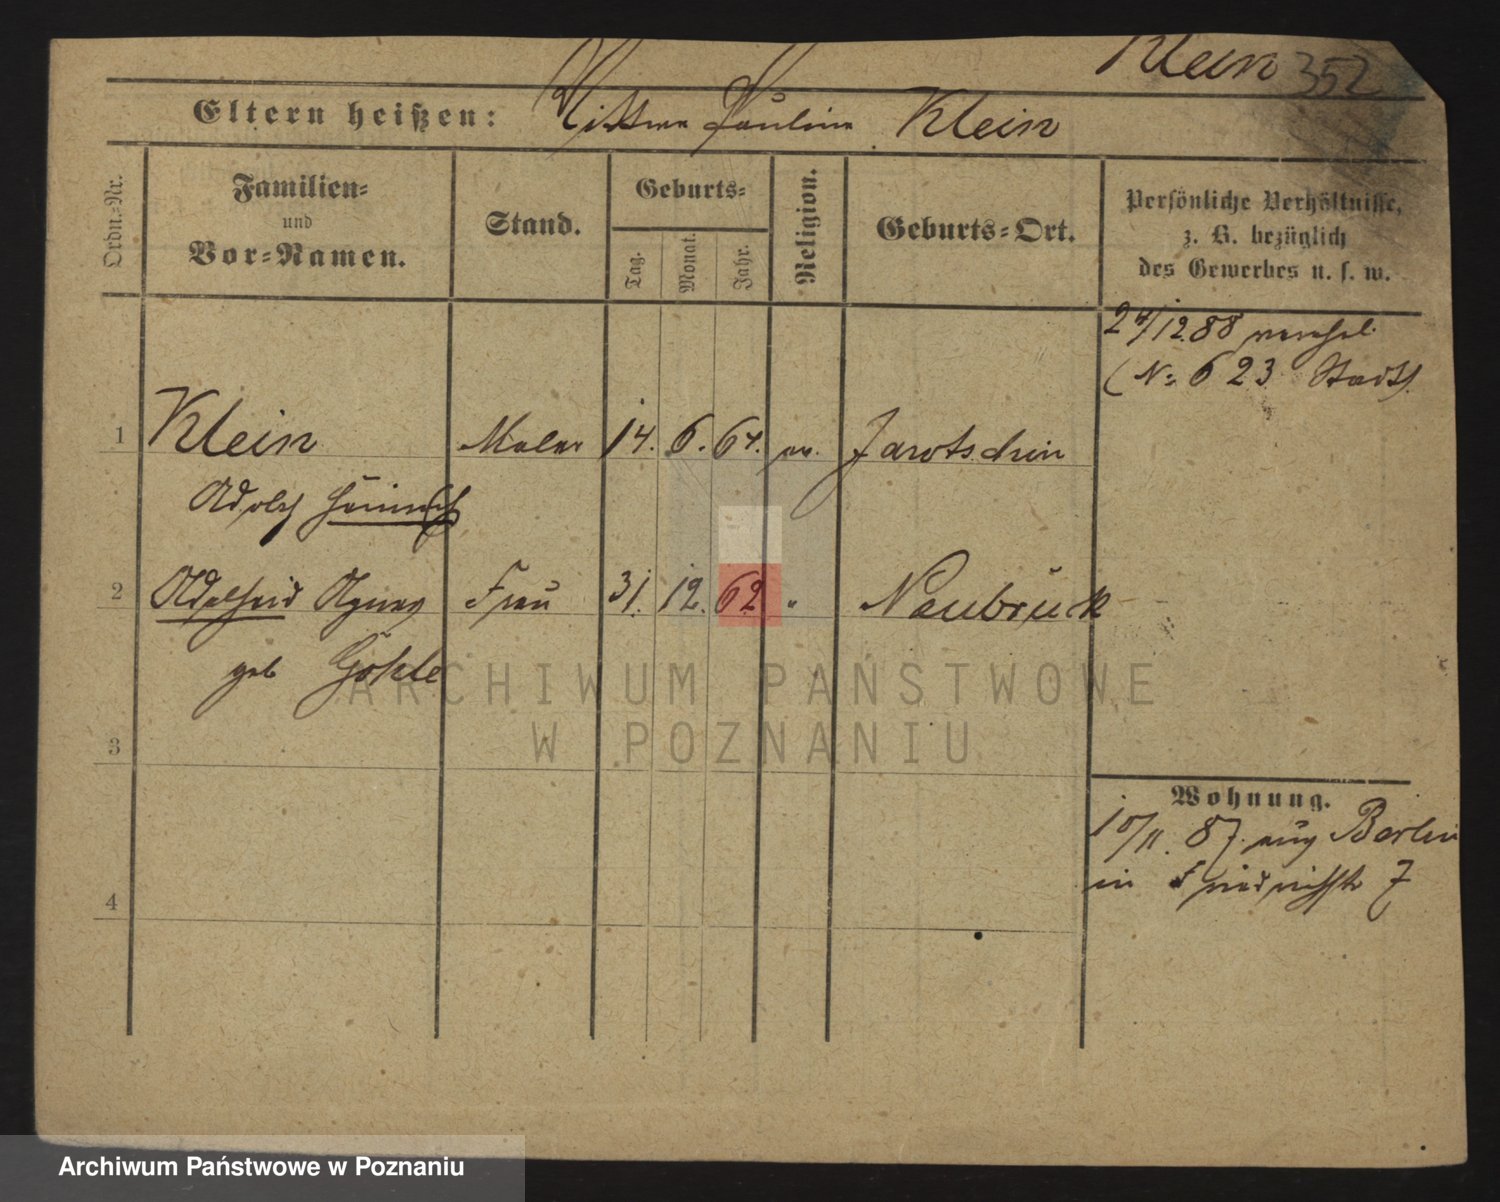 Klein 352
Eltern heißen: Wittwe Pauline Klein
Ordn.-Nr.
Familien-
und
Vor-Namen.
Stand.
Geburts-
Tag.
Monat.
Jahr.
Religion.
Geburts-Ort.
Persönliche Verhältnisse,
z. B. bezüglich
des Gewerbes u. s. w.
24/12.88 verehel.
(No 623 Stadt).
1 Klein Maler 14. 6. 64. ev. Jarotschin
Adolf Heinrich
2 Adelheid Agnes Frau 31. 12. 62 " Neubrück
geb Göhle
3
4
Wohnung.
10/11. 87. aus Berlin
in Friedrichstr 7
ARCHIWUM PAŃSTWOWE
W POZNANIU
Archiwum Państwowe w Poznaniu